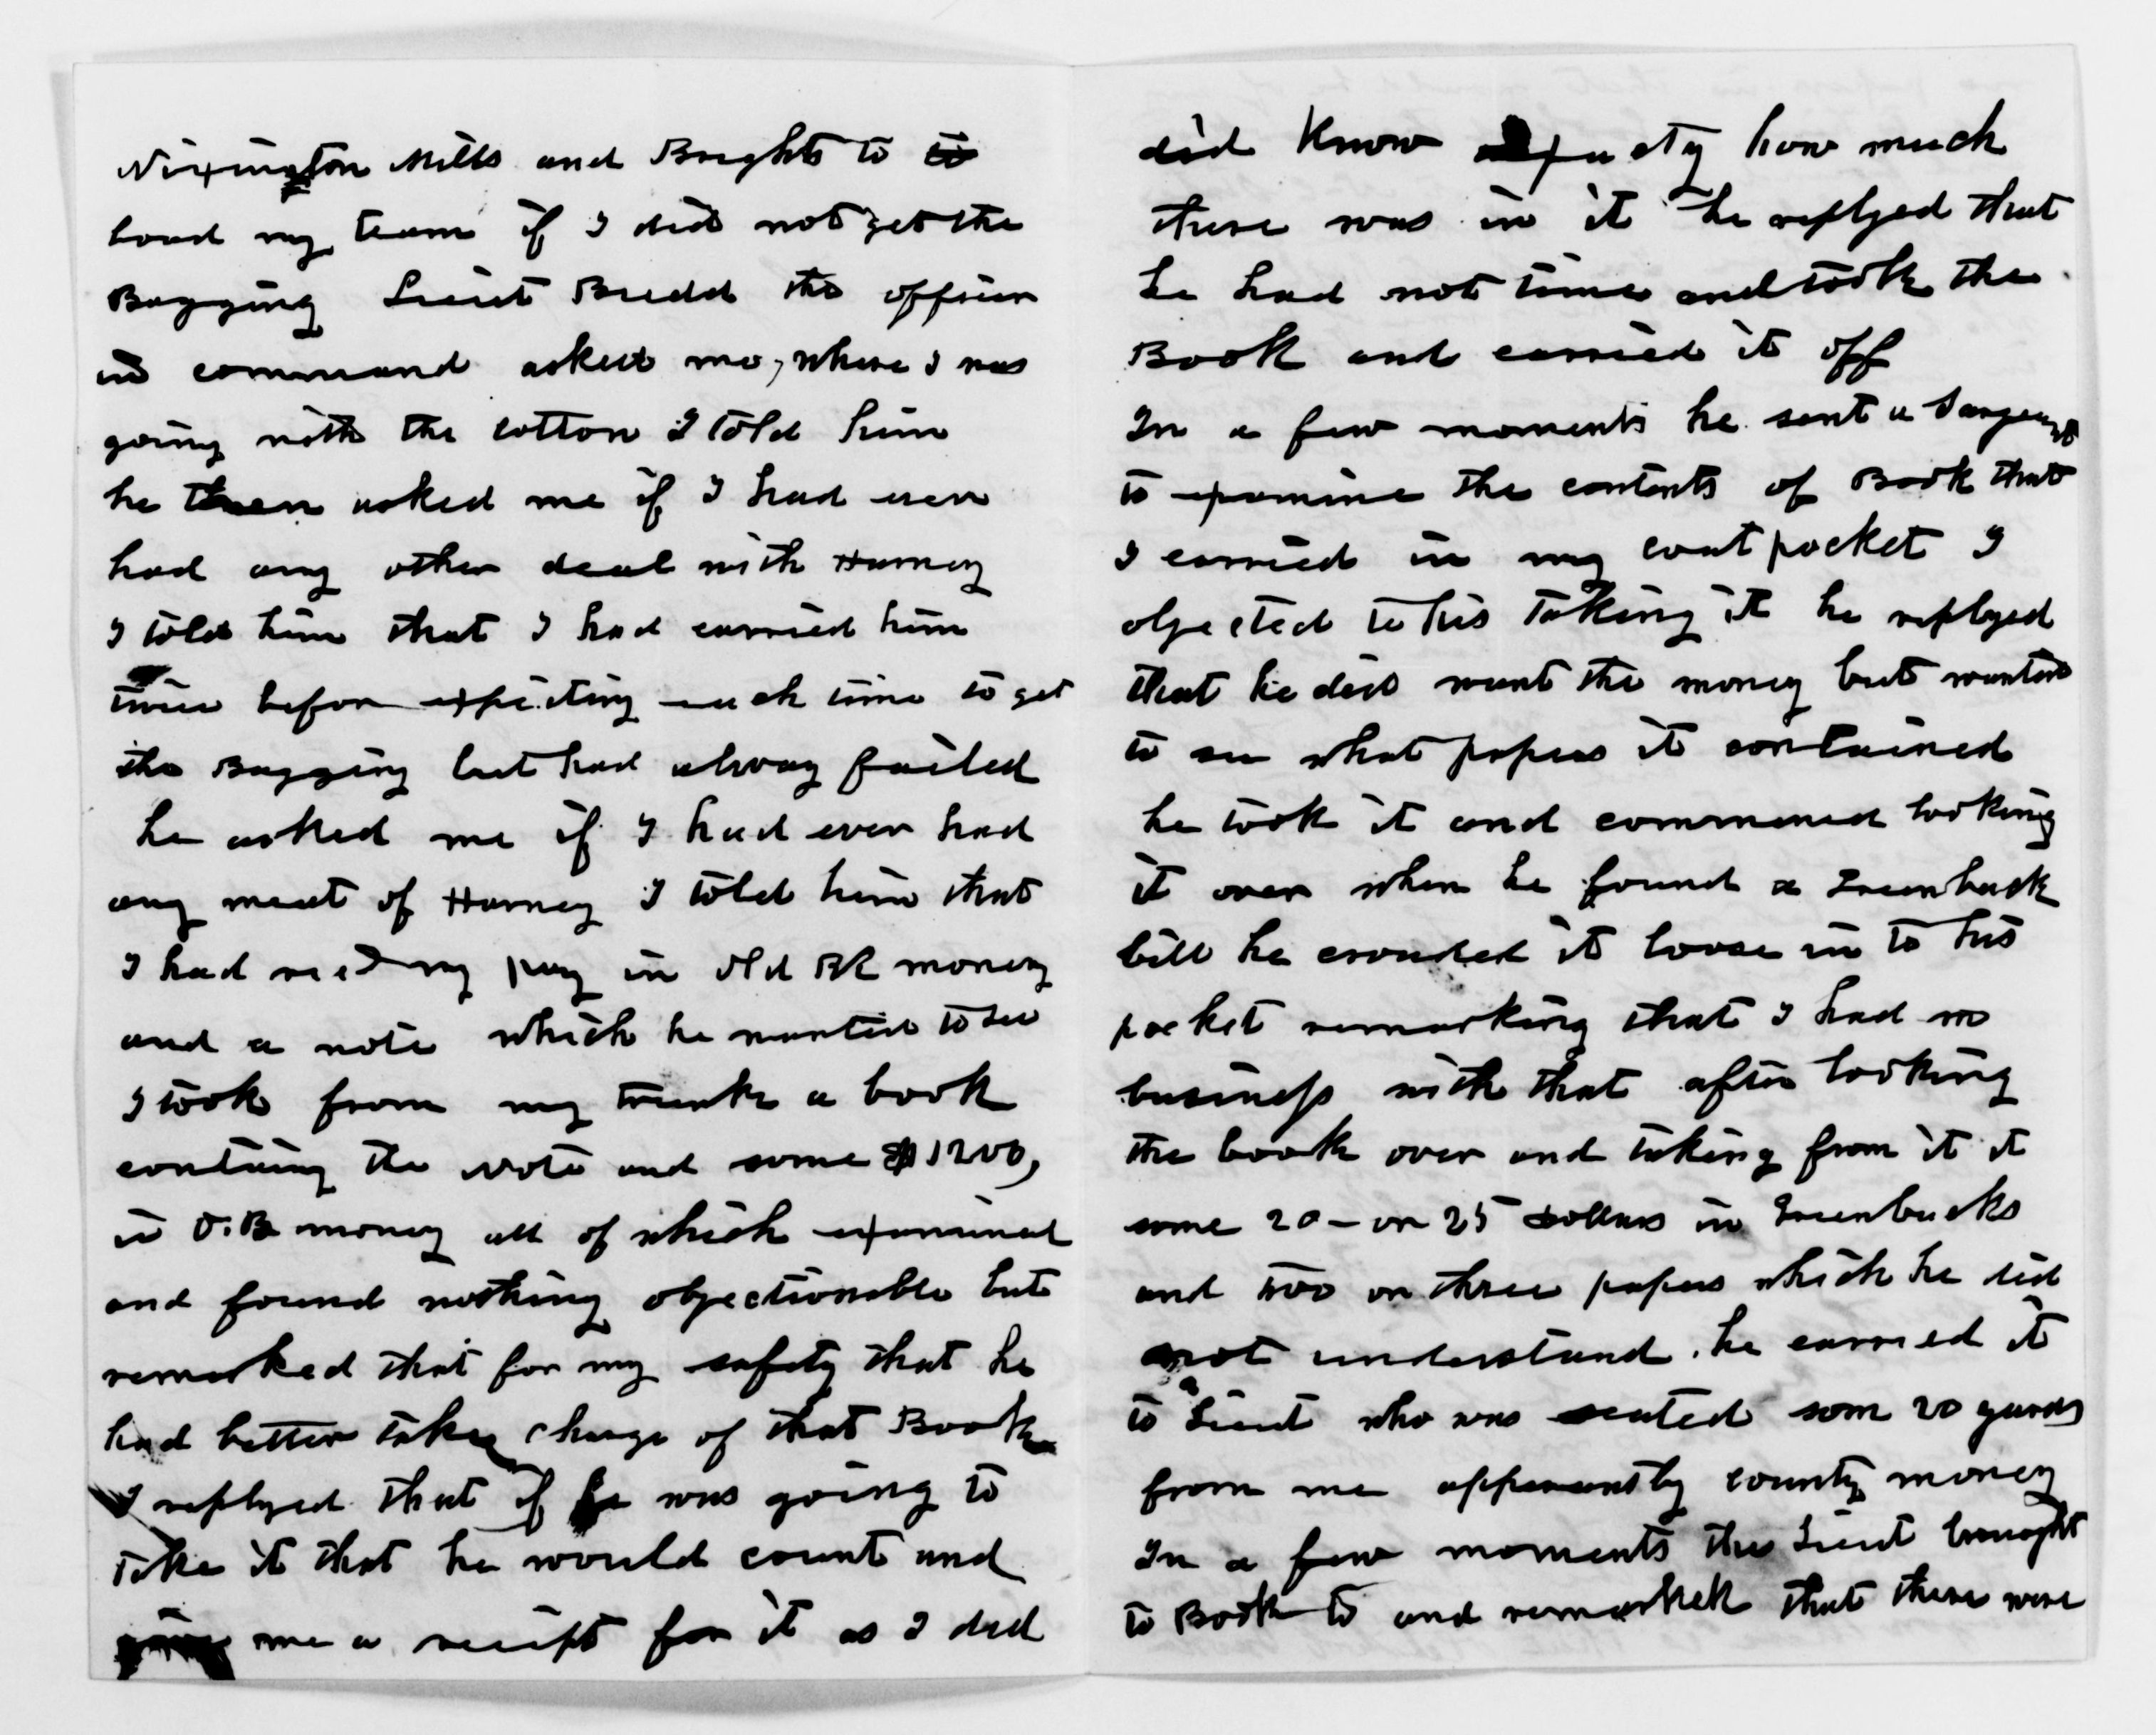 Nixington Mills and Brights to to
load my team if I did not get the
Bagging Lieut Bredd the officer
in command asked me, where I was
going with the cotton I told him
he then asked me if I had ever
had any other deal with Harney
I told him that I had carried him
twice before expecting each time to get
the Bagging but had alway failed
he asked me if I had ever had
any meat of Harney I told him that
I had recd my pay in old Bk money
and a note which he wanted to see
I took from my trunk a book
containg the Note and some $1200,
in O.B. money all of which examined
and found nothing objectionable but
remarked that for my safety that he
had better take charge of that Book
I replyed that if he was going to
take it that he would count and
give me a recipt for it as I did
did know expactly how much
there was in it he replyed that
he had not time and took the
Book and carried it off
In a few moments he sent a Sargeant
to examine the contents of Book that
I carried in my coat pocket I
objected to his taking it he replyed
that he did want the money but wanted
to see what papers it contained
he took it and commenced looking
it over when he found a Greenback
bill he crouded it loose in to his
pocket remarking that I had no
business with that after looking
the book over and taking from it it
some 20 – or 25 dollars in Greenbacks
and two or three papers which he did
not understand. he carried it
to Lieut who was seated som 20 yards
from me apparantly county money
In a few moments the Lieut brought
to Book to and remarkek that there were